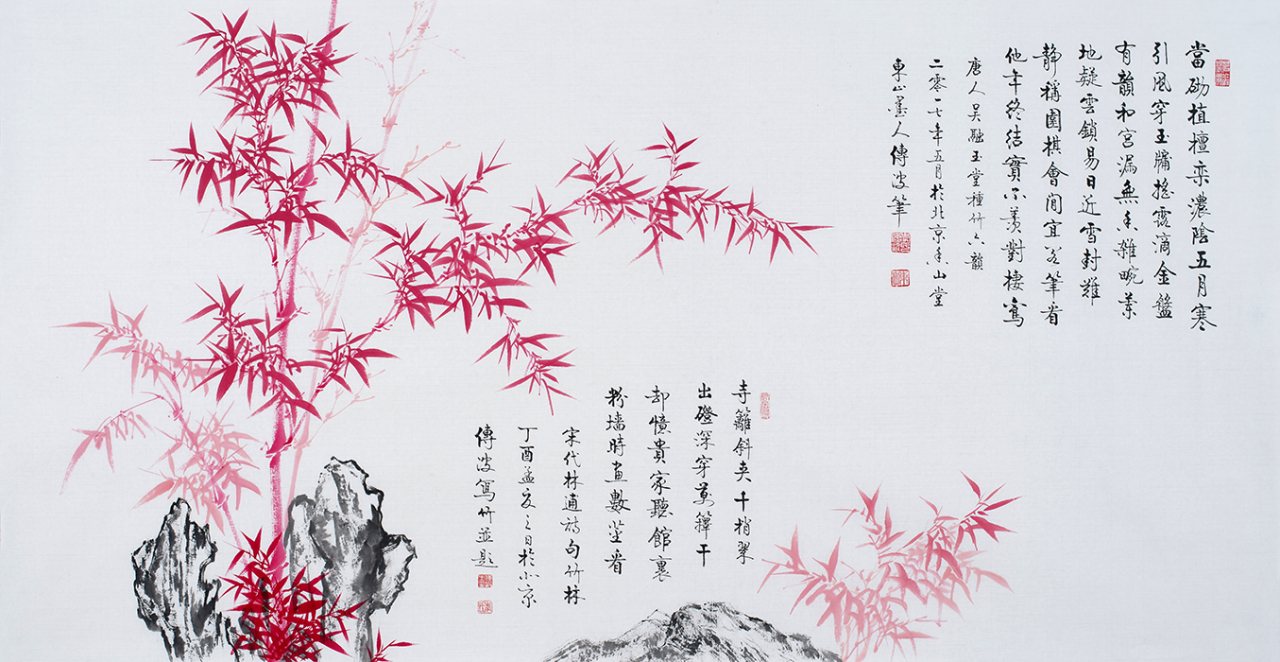 當砌植檀栾濃陰五月寒
引風穿玉牖摇露滴金盤
有韻和宫漏無香雜畹蘭
地疑雲鎖易日近雪封難
静稱圍棋會閒宜閣筆看
他年終結實不羡對棲鸞
唐人吴融玉堂種竹六韻
二零一七年五月於北京香山堂
東山墨人傅波筆
寺籬斜夾千梢翠
出磴深穿萬籜干
却憶貴家聽館裏
粉墻時畫數莖看
宋代林逋詩句竹林
丁酉孟夏之日於北京
傅波寫竹並題